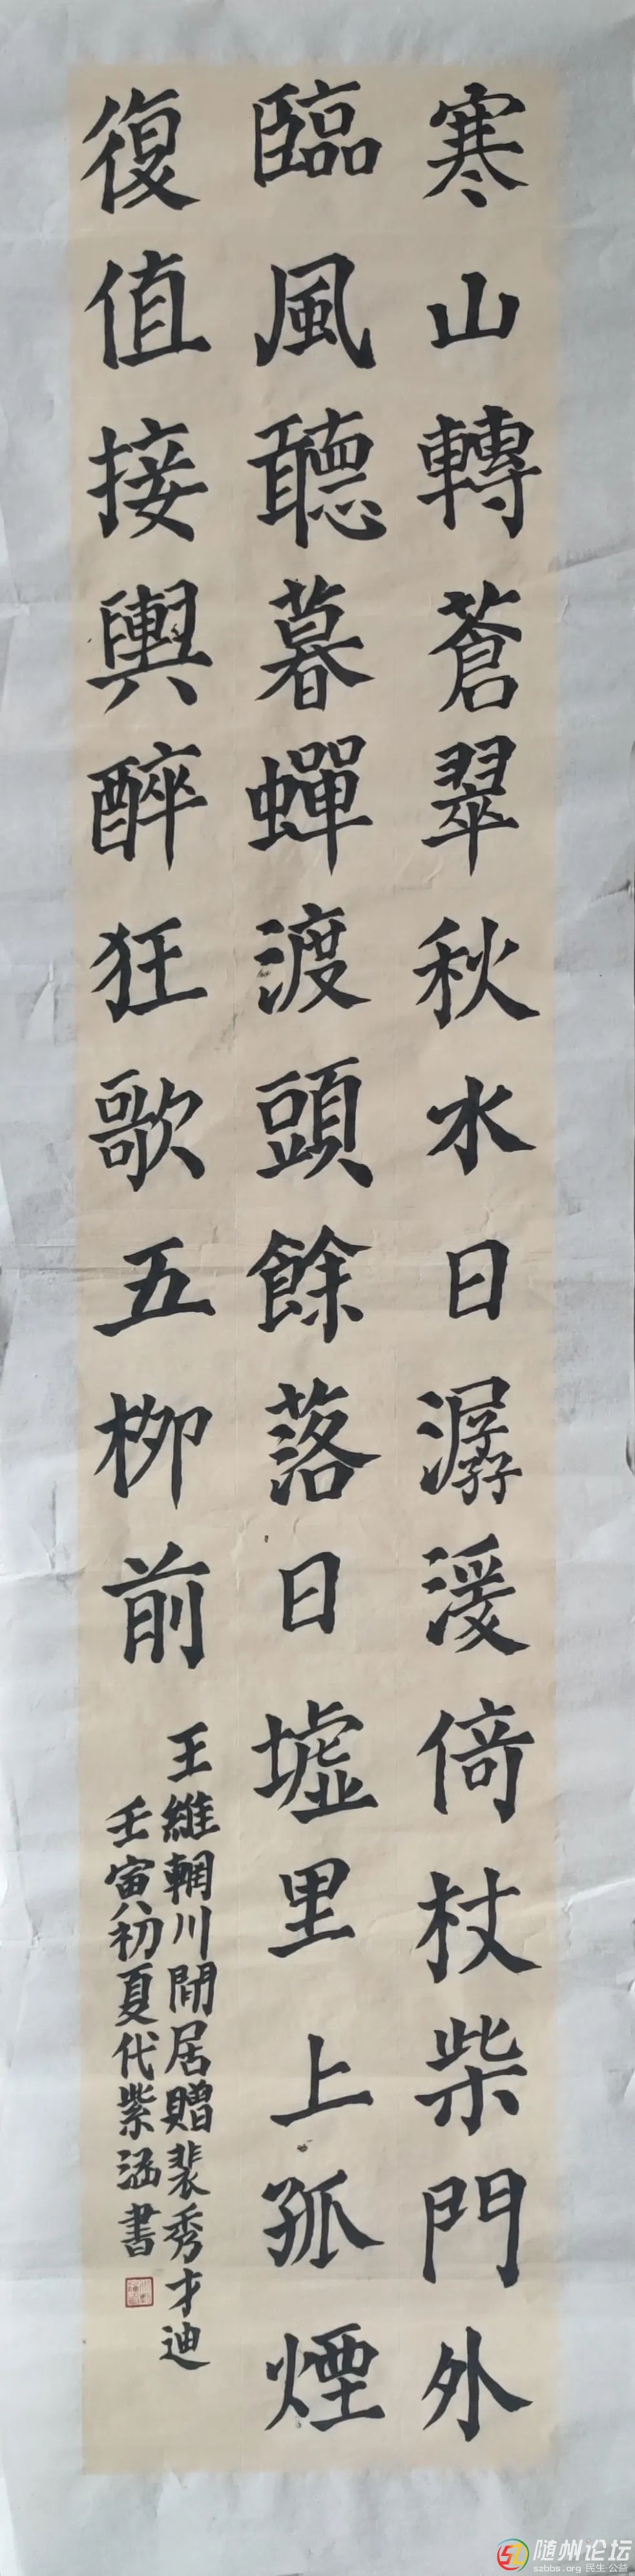 寒山轉蒼翠秋水日潺湲倚杖柴門外
臨風聽暮蟬渡頭餘落日墟里上孤煙
復值接輿醉狂歌五柳前
王維輞川閒居贈裴秀才迪
壬寅初夏代紫涵書
随州论坛
szbbs.org 民生·公益